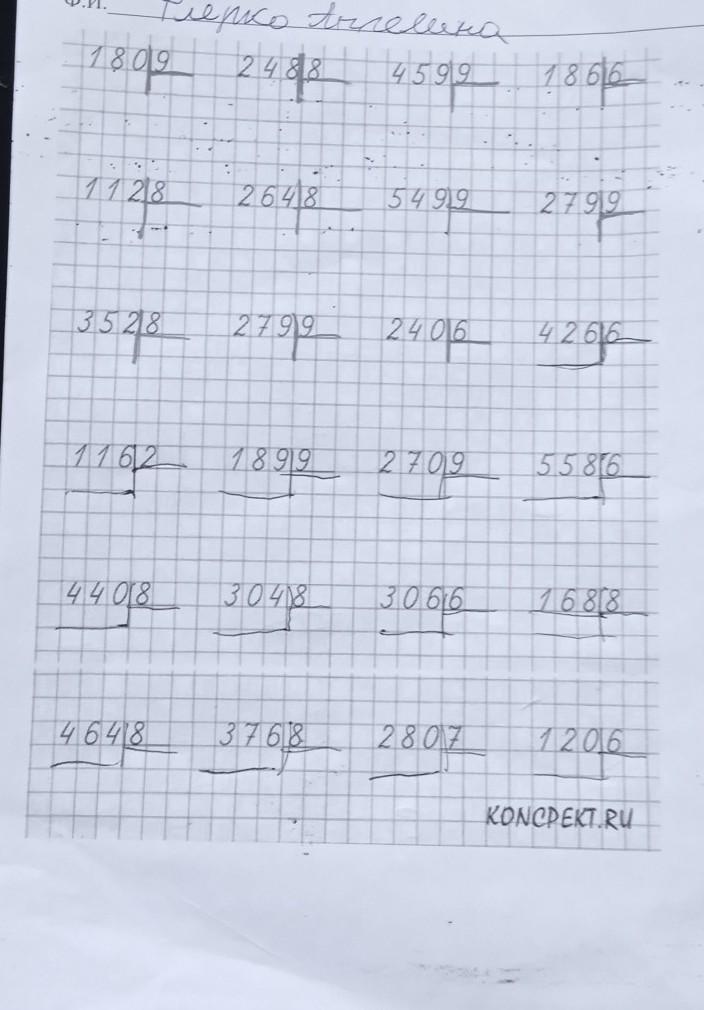 Ф.И. Глерко Ангелина
180|9 248|8 459|9 186|6
112|8 264|8 549|9 279|9
352|8 279|9 240|6 426|6
116|2 189|9 270|9 558|6
440|8 304|8 306|6 168|8
464|8 376|8 280|7 120|6
KONCPEKT.RU